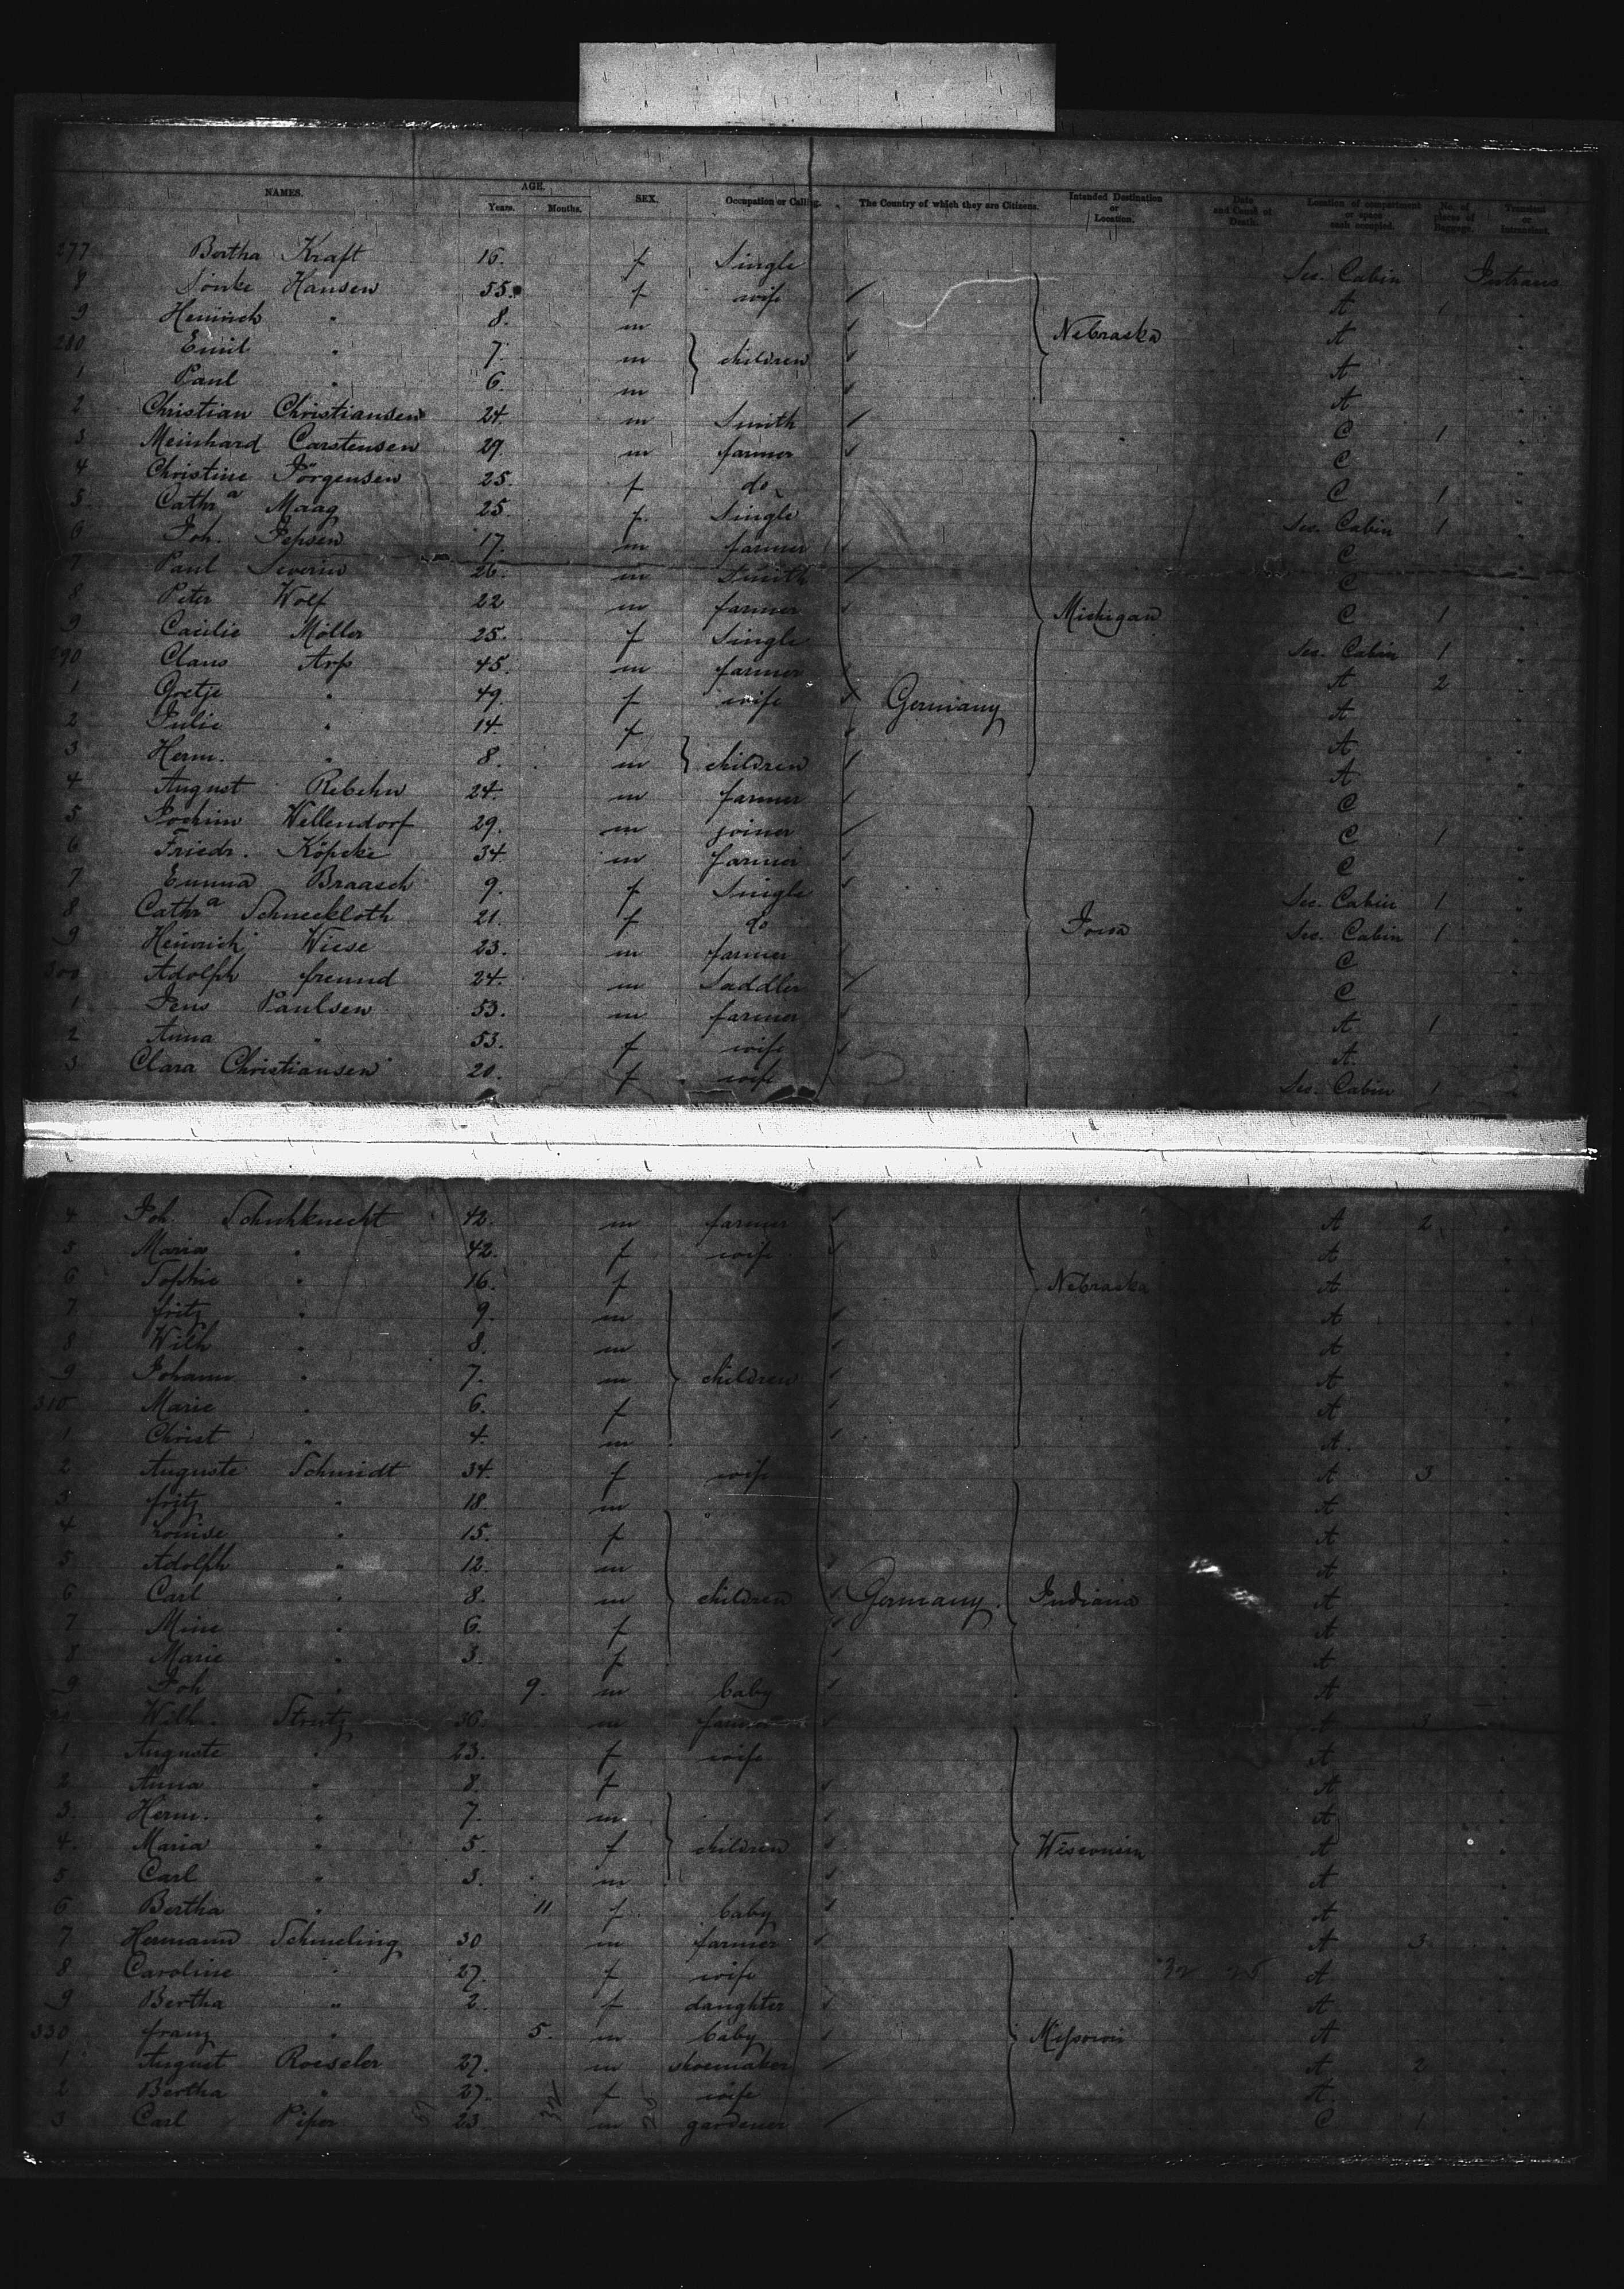 NAMES. AGE. Years. Months. SEX. Occupation or Calling. The Country of which they are Citizens. Intended Destination or Location. Date and Cause of Death. Location of compartment or space each occupied. No. of pieces of Baggage. Transient or Intransient.
277 Bertha Kraft 16. f Single Sec. Cabin Intrans
8 Sönke Hansen 55. f wife A 1 "
9 Heinrich " 8. m Nebraska A "
280 Emil " 7. m children A "
1 Paul " 6. m A "
2 Christian Christiansen 24. m Smith C 1 "
3 Meinhard Carstensen 29. m farmer C "
4 Christine Jörgensen 25. f do C 1 "
5 Cathr^a Maag 25. f. Single Sec. Cabin 1 "
6 Joh. Jepsen 17. m farmer C "
7 Paul Severin 26. m Smith C "
8 Peter Wolf 22 m farmer Michigan C 1 "
9 Cacilie Möller 25. f Single Sec. Cabin 1 "
290 Claus Arp 45. m farmer A 2 "
1 Gretje " 49. f wife Germany A "
2 Julie " 14. f A "
3 Herm. " 8. m children A "
4 August Rebehn 24. m farmer C "
5 Jochim Wellendorf 29. m joiner C 1 "
6 Friedr. Köpcke 34. m farmer C "
7 Emma Braasch 9. f Single Sec. Cabin 1 "
8 Cathr^a Schneekloth 21. f do Iowa Sec. Cabin 1 "
9 Heinrich Wiese 23. m farmer C "
300 Adolph freund 24. m Saddler C "
1 Jens Paulsen 53. m farmer A 1 "
2 Anna " 53. f wife A. "
3 Clara Christiansen 20. f wife Sec. Cabin 1 "
4 Joh. Schuhknecht 42. m farmer A 2 "
5 Maria " 42. f wife A "
6 Sophie " 16. f Nebraska A "
7 fritz " 9. m A "
8 Wilh " 8. m A "
9 Johann " 7. m children A "
310 Marie " 6. f A "
1 Christ " 4. m A. "
2 Auguste Schmidt 34. f wife A 3 "
3 fritz " 18. m A "
4 Louise " 15. f A "
5 Adolph " 12. m A "
6 Carl " 8. m children Germany. Indiana A "
7 Mine " 6. f A "
8 Marie " 3. f A "
9 Joh " 9. m baby A "
20 Wilh. Strutz 36. m farmer A 3 "
1 Auguste " 23. f wife A "
2 Anna " 8. f A "
3. Herm. " 7. m. A "
4. Maria " 5. f children Wisconsin A "
5 Carl " 3. m A "
6 Bertha " 11 f baby A "
7 Hermann Schmeling 30 m farmer A 3. "
8 Caroline " 27. f wife A "
9 Bertha " 2. f daughter A "
330 franz " 5. m baby Missouri A "
1 August Roeseler 27. m shoemaker A 2 "
2 Bertha " 27. f wife A. "
3 Carl Piper 23. m gardener C 1 "